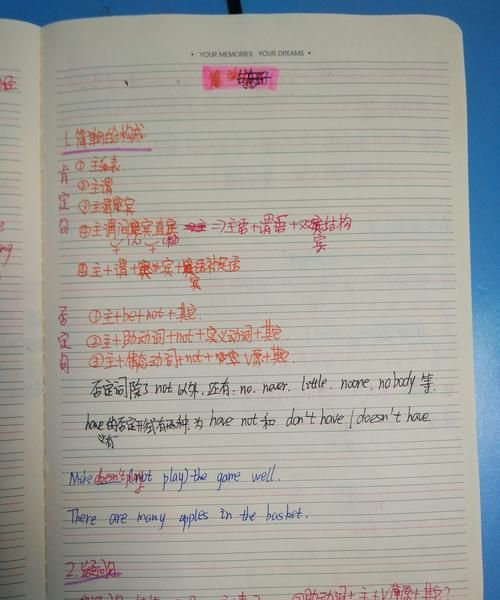 • YOUR MEMORIES YOUR DREAMS •
简单句
1.简单句的构成
肯定句
①主系表
②主谓
③主谓宾
④主谓间宾直宾 ⇒主语+谓语+双宾结构
人 物
宾
④主+谓+宾+宾语补足语
宾
否定句
①主+be+not+其它
②主+助动词+not+实义动词+其它
③主+情态动词+not+V原+其它
否定词除了not以外,还有:no, never, little, noone, nobody 等.
have的否定形式有两种,为 have not 和 don't have / doesn't have.
"有"
Mike doesn't play(not play) the game well.
There are many apples in the basket.
2.疑问句
②助动词+主+V原+其它?